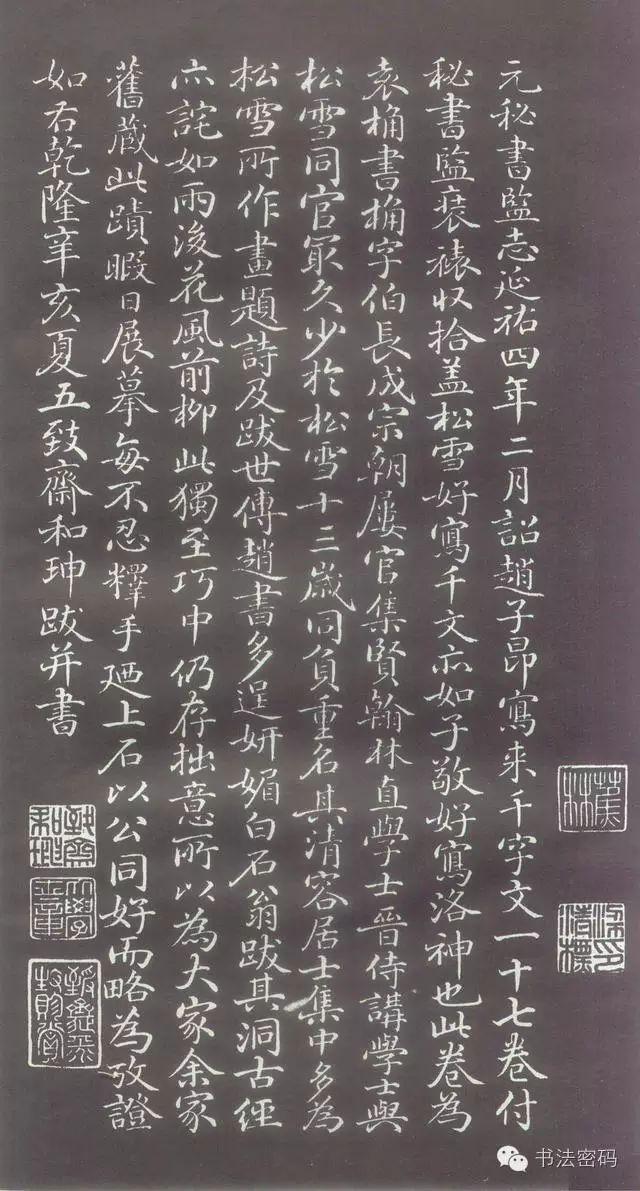 元秘書監志延祐四年二月詔趙子昂寫来千字文一十七卷付
秘書監裝裱収拾盖松雪好寫千文亦如子敬好寫洛神也此卷為
袁桷書桷字伯長成宗朝屢官集賢翰林直學士晉侍講學士與
松雪同官最久少於松雪十三歲同負重名其清容居士集中多為
松雪所作畫題詩及跋世傳趙書多逞妍媚白石翁跋其洞古經
亦詫如雨後花風前柳此獨至巧中仍存拙意所以為大家余家
舊藏此蹟暇日展摹每不忍釋手廼上石以公同好而略為攷證
如右乾隆辛亥夏五致齋和珅跋并書
蕉林
梁清標印
致齋和珅
大學士章
书法密码